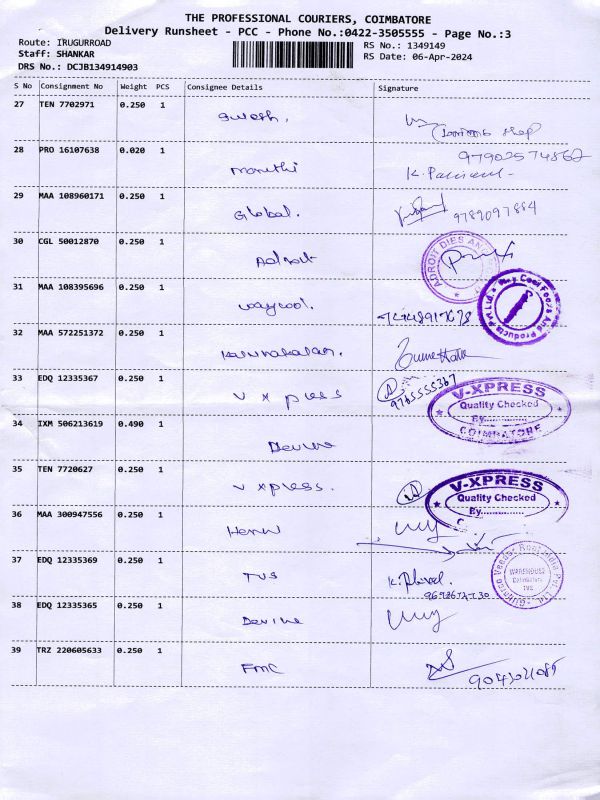 THE PROFESSIONAL COURIERS, COIMBATORE
Delivery Runsheet - PCC - Phone No.:0422-3505555 - Page No.:3
Route: IRUGURROAD
RS No.: 1349149
Staff: SHANKAR
RS Date: 06-Apr-2024
DRS No.: DCJB134914903
S No Consignment No Weight PCS Consignee Details Signature
27 TEN 7702971 0.250 1
28 PRO 16107638 0.020 1
97902574862
Maruthi
29 MAA 108960171 0.250 1
Global. 9789097884
30 CGL 50012870 0.250 1
Adroit
ADROIT DIES AND
31 MAA 108395696 0.250 1
Waycool.
Way Cool Foods And Products Pvt Ltd.
32 MAA 572251372 0.250 1
33 EDQ 12335367 0.250 1
V Xpress 9765555367
V-XPRESS
Quality Checked
By..........
COIMBATORE
34 IXM 506213619 0.490 1
Devine
35 TEN 7720627 0.250 1
V Xpress.
V-XPRESS
Quality Checked
By..........
36 MAA 300947556 0.250 1
37 EDQ 12335369 0.250 1
TVS
WAREHOUSE
Coimbatore
TVS
38 EDQ 12335365 0.250 1
Devine
39 TRZ 220605633 0.250 1
FMC